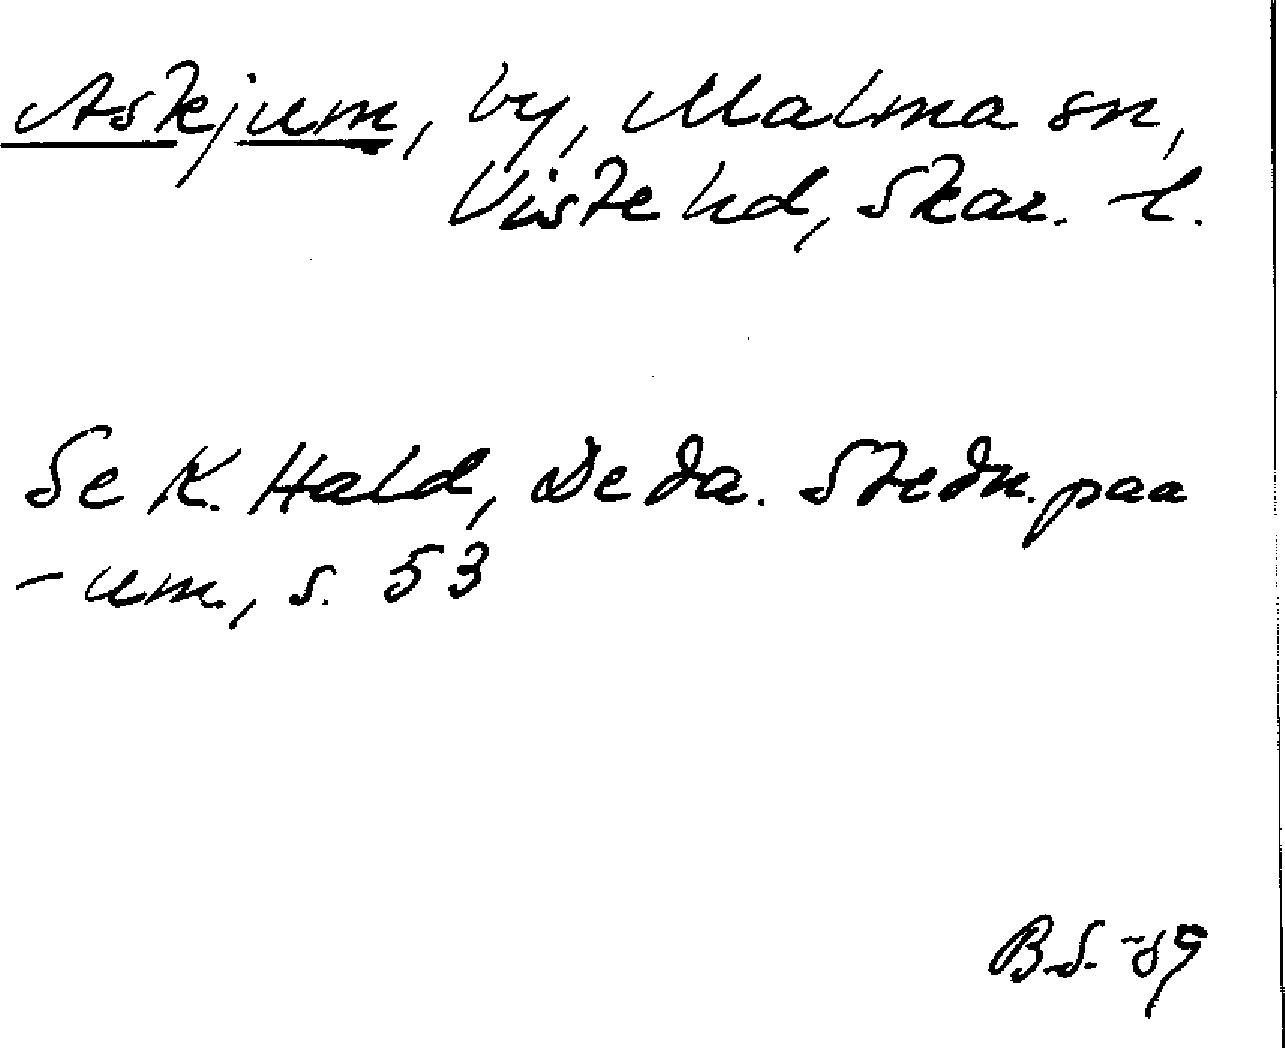 Askejum, by, Malma sn,
Viste hd, Skar. l.
Se K. Hald, De da. Stedn. paa
-um., s. 53
B.S. -89